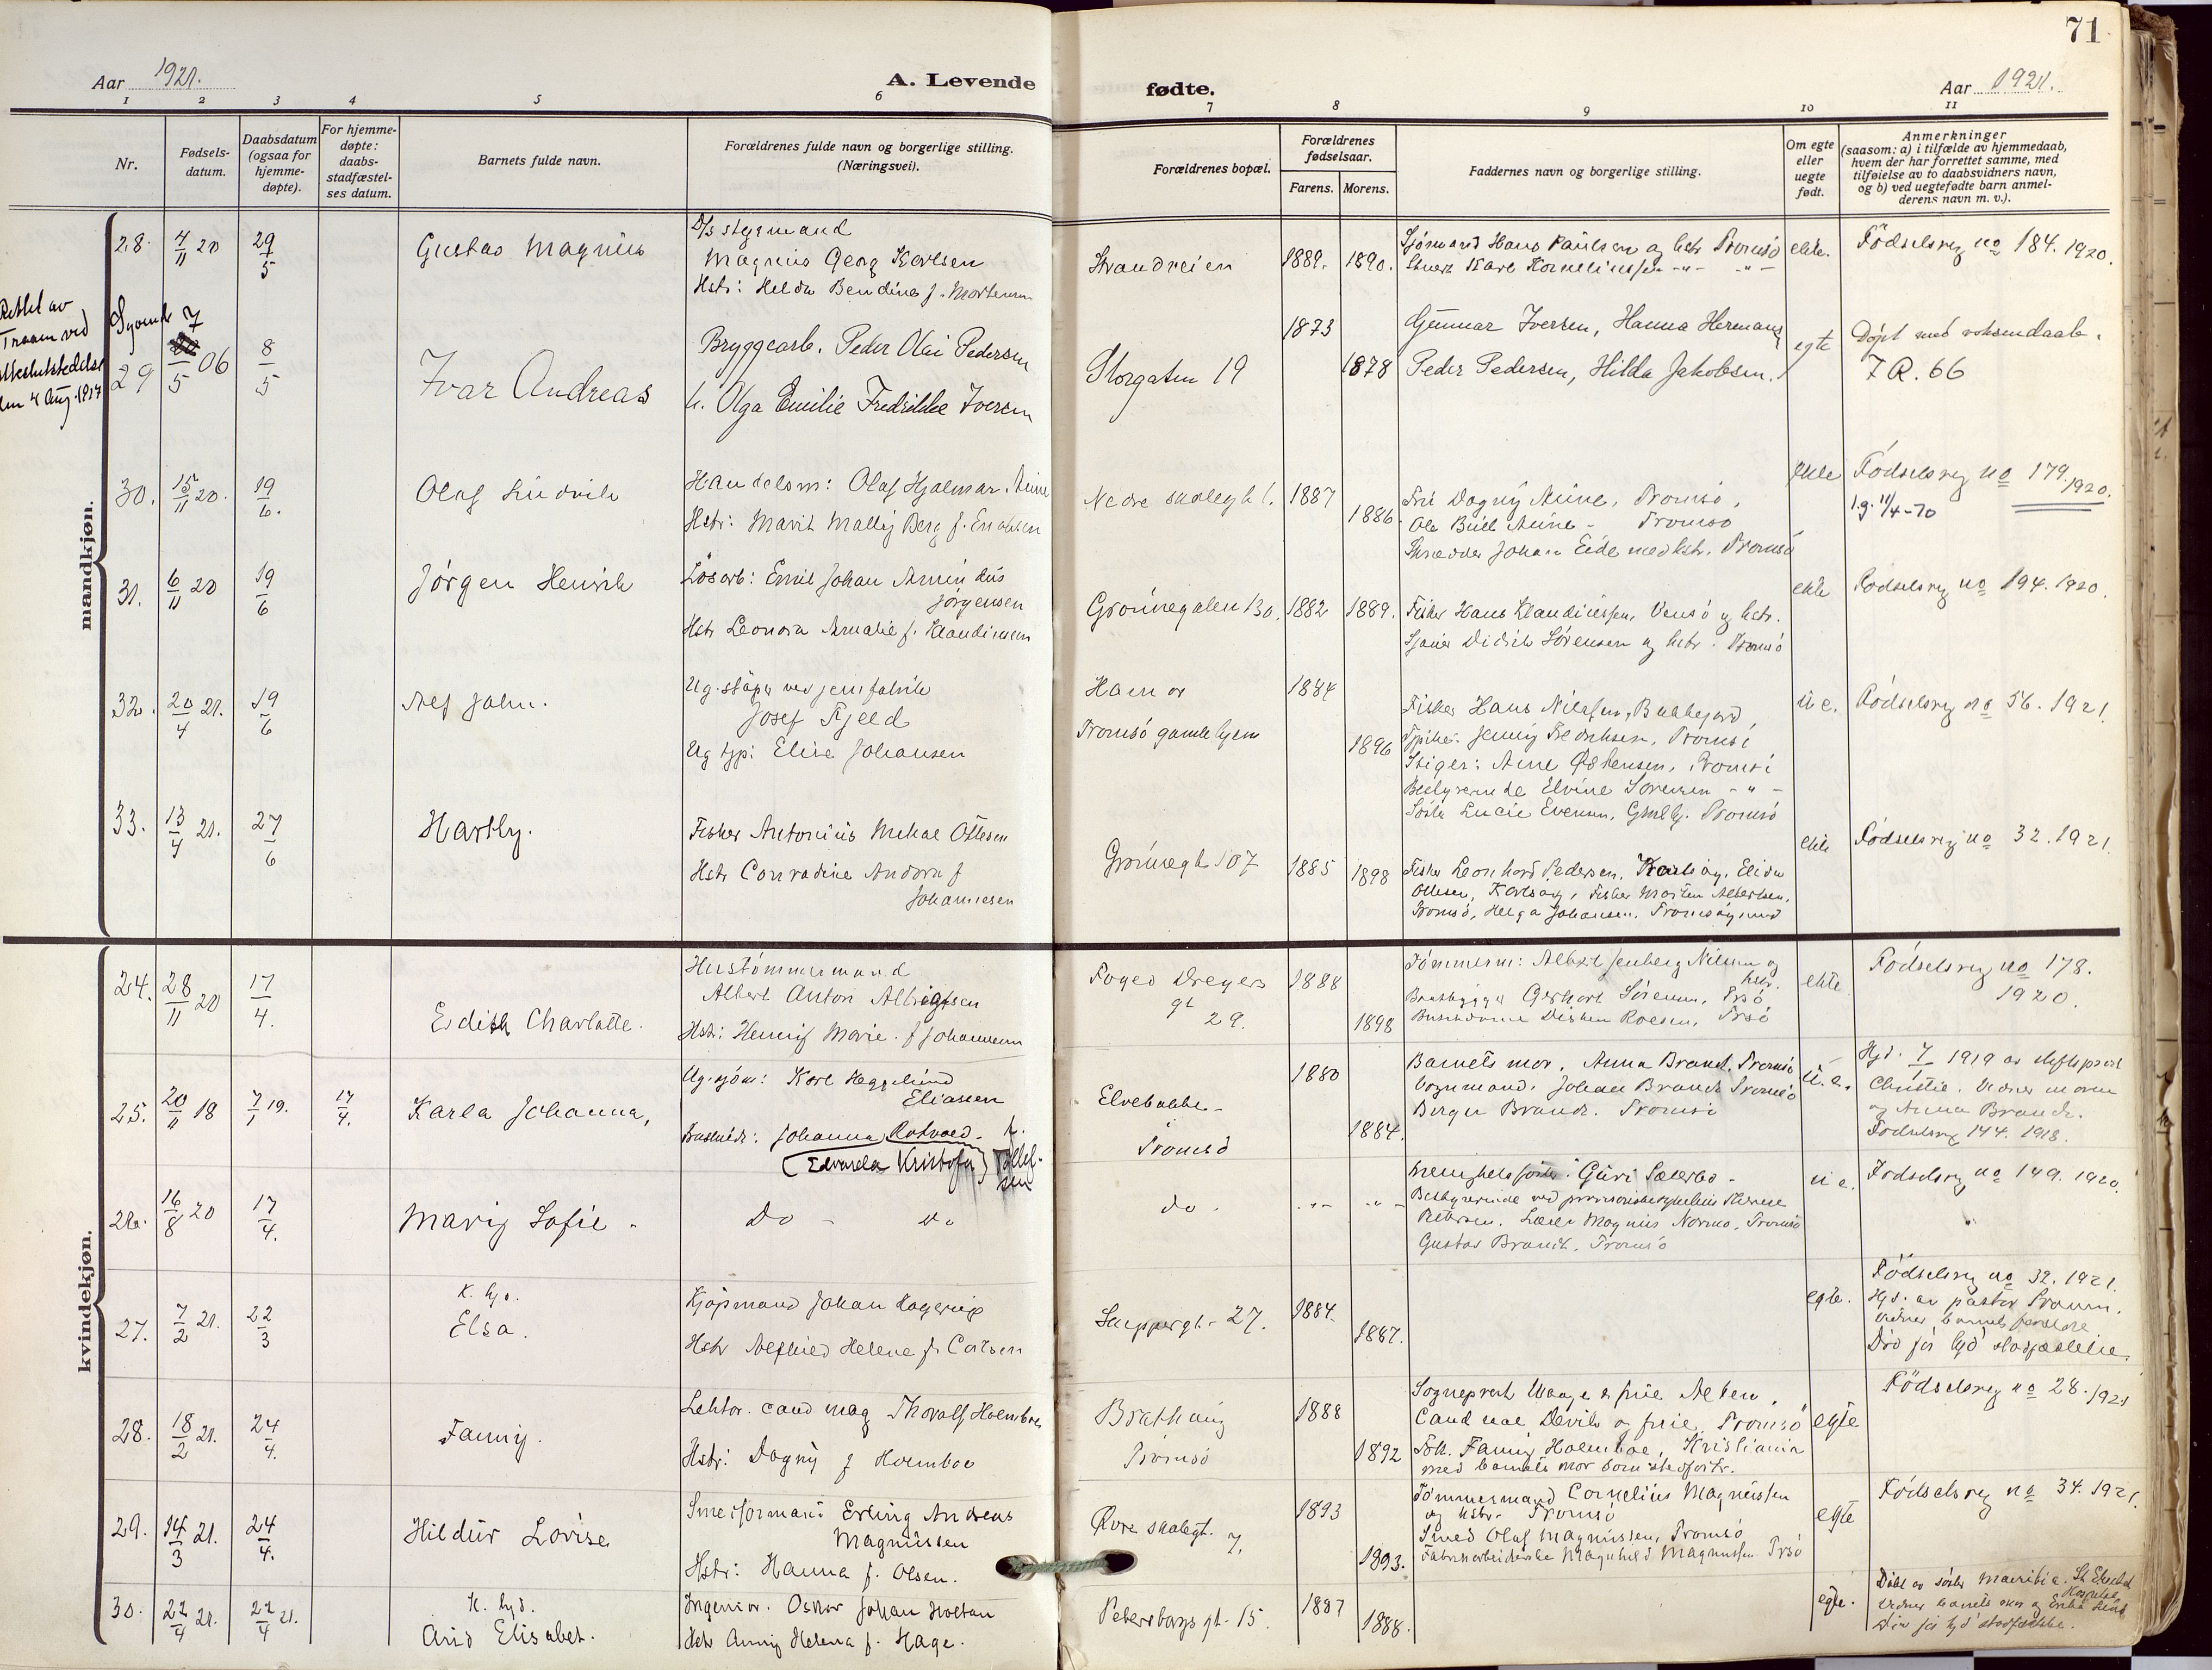 71
Aar 1921.
A. Levende
fødte.
Aar 1921.
1 2 3 4 5 6 7 8 9 10 11
Nr.
Fødsels-
datum.
Daabsdatum
(ogsaa for
hjemme-
døpte).
For hjemme-
døpte:
daabs-
stadfæstel-
ses datum.
Barnets fulde navn.
Forældrenes fulde navn og borgerlige stilling.
(Næringsvei).
Forældrenes bopæl.
Forældrenes
fødselsaar.
Farens. Morens.
Faddernes navn og borgerlige stilling.
Om egte
eller
uegte
født.
Anmerkninger
(saasom: a) i tilfælde av hjemmedaab,
hvem der har forrettet samme, med
tilføielse av to daabsvidners navn,
og b) ved uegtefødte barn anmel-
derens navn m. v.).
mandkjøn.
28. 4/11 20 29/5 Gustav Magnus
D/s styrmand
Magnus Georg Karlsen
Hstr: Helda Bendine f. Mortensen
Strandveien 1889. 1890.
Sjömand Hans Paulsen og hstr Tromsö
Karl Korneliussen -"- -"-
ekte. Födselsreg no 184. 1920.
Rettet av
Traaen ved
den 4 Aug. 1917
Syvende 7
29 5 06 8/5 Ivar Andreas
Bryggearb. Peder Olai Pedersen
h. Olga Emilie Fredrikke Iversen
Storgaten 19 1873 1878
Gunnar Iversen, Hanna Hermans
Peder Pedersen, Hilda Jakobsen.
egte Döpt med voksendaab.
7 R. 66
30. 15/11 20. 19/6. Olaf Ludvik
Handelsm: Olaf Hjalmar Aune
Hstr: Marit Mally Berg f. Enoksen
Nedre skolegt 1. 1887 1886
Frk Dagny Aune, Tromsö,
Ole Bull Aune - Tromsö
Skrædder Johan Eide med hstr. Tromsö
ekte Födselsreg no 179. 1920.
l.g. 11/4-70
31. 6/11 20 19/6 Jörgen Henrik
Lösarb: Emil Johan Amundus
Jörgensen
Hstr Leonora Amalie f. Klaudiussen
Grönnegaten 130. 1882 1889.
Fisker Hans Klaudiussen, og hstr.
Didrik Sörensen og hstr. Tromsö
ekte Födselsreg no 194. 1920.
32. 20/4 21. 19/6 Alf John.
Ug. støper ved jernfabrik
Josef Fjeld
Ug tjp: Elise Johansen
Hamar
Tromsö gamlehjem 1884 1896
Fisker Hans Nilssen,
Tjpike: Jenny Fredriksen, Tromsö
Stiger: Arne Østensen, Tromsö
Bestyrerinde Elvine Sörensen -"-
Söster Lucie Evensen, Gmlhj. Tromsö
u e. Födselsreg no 56. 1921.
33. 13/4 21. 27/6 Hartly.
Fisker Antonius Mikal Ottesen
Hstr Conradine Andora f
Johannesen
Grönnegt 107 1885 1898
Fisker Leonhard Pedersen, Karlsöy, Elida
Ottesen, Karlsöy, Fisker Morten Albertsen,
Tromsö, Helga Johansen, Tromsöysund
ekte Födselsreg no 32. 1921.
kvindekjøn.
24. 28/11 20 17/4. Edith Charlotte.
Hustömmermand
Albert Anton Albrigtsen
Hstr: Henny Marie. f Johannesen
Foged Dreyers
gt
29. 1888 1898
Tömmerm: Albert Jenberg Nilsen og
hstr.
Gerhart Sörensen, Trsö,
Roesen, Trsö
ekte Födselsreg no 178.
1920.
25. 20/11 18 7/1 19. 17/4. Karla Johanna,
Ug. sjöm: Karl Heggelund
Eliasen
Johanna Rotvold f.
(Edvarda Kristofa) Tollef-
sen
Elvebakke -
Tromsö 1880 1884.
Barnets mor, Anna Brandt. Tromsö
Vognmand. Johan Brandt Tromsö
Birger Brandt. Tromsö
u. e. Hjd. 7/1 1919 av stiftsprost
Christie. Vidner moren
og Anna Brandt.
Födselsreg 144. 1918.
26. 16/8 20 17/4. Marij Sofie -
Do - do
do. -"- -"-
Menighetssöster Guri Sæterbö -
Bestyrerinde ved Therese
Pettersen. Magnus Normo, Tromsö
Gustav Brandt, Tromsö
u e. Födselsreg no 149. 1920.
27. 7/2 21. 22/3 K. hjd.
Elsa.
Kjöpmand Johan Hagerup
Hstr Alfhild Helene f. Carlsen
Skippergt. 27. 1884. 1887.
egte. Födselsreg no 32. 1921.
Hjd. av pastor Traaen.
vidner barnets forældre
Död för hjd stadfæstelse.
28. 18/2 21. 24/4. Fanny.
Lektor. cand mag Thorolf Holmboe
Hstr: Dagny f Holmboe
Brathaug
Tromsö 1888 1892
Sogneprest Waage & frue Alten,
Cand real Devik og frue, Tromsö
Frk. Fanny Holmboe, Kristiania
med barnets mor som stedfortr.
egte Födselsreg no 28. 1921
29. 14/3 21. 24/4. Hildur Lovise
Smedformand Erling Andreas
Magnussen
Hstr: Hanna f. Olsen.
Øvre skolegt. 7. 1893 1893.
Tömmermand Cornelius Magnussen
og hstr. Tromsö
Smed Olaf Magnussen, Tromsö
Fabrikarbeiderske Magnhild Magnussen Trsö
egte Födselsreg no 34. 1921.
30. 22/4 21. 22/4 21. H. hjd.
Arid Elisabet.
Ingeniör. Oskar Johan Holtan
Hstr Anny Helena f. Hage.
Petersborgs gt. 15. 1887 1888.
egte. Döbt av söster Mauritia. St Elisabet
Hospital.
Vidner barnets mor og
Död för hjd stadfæstelse.